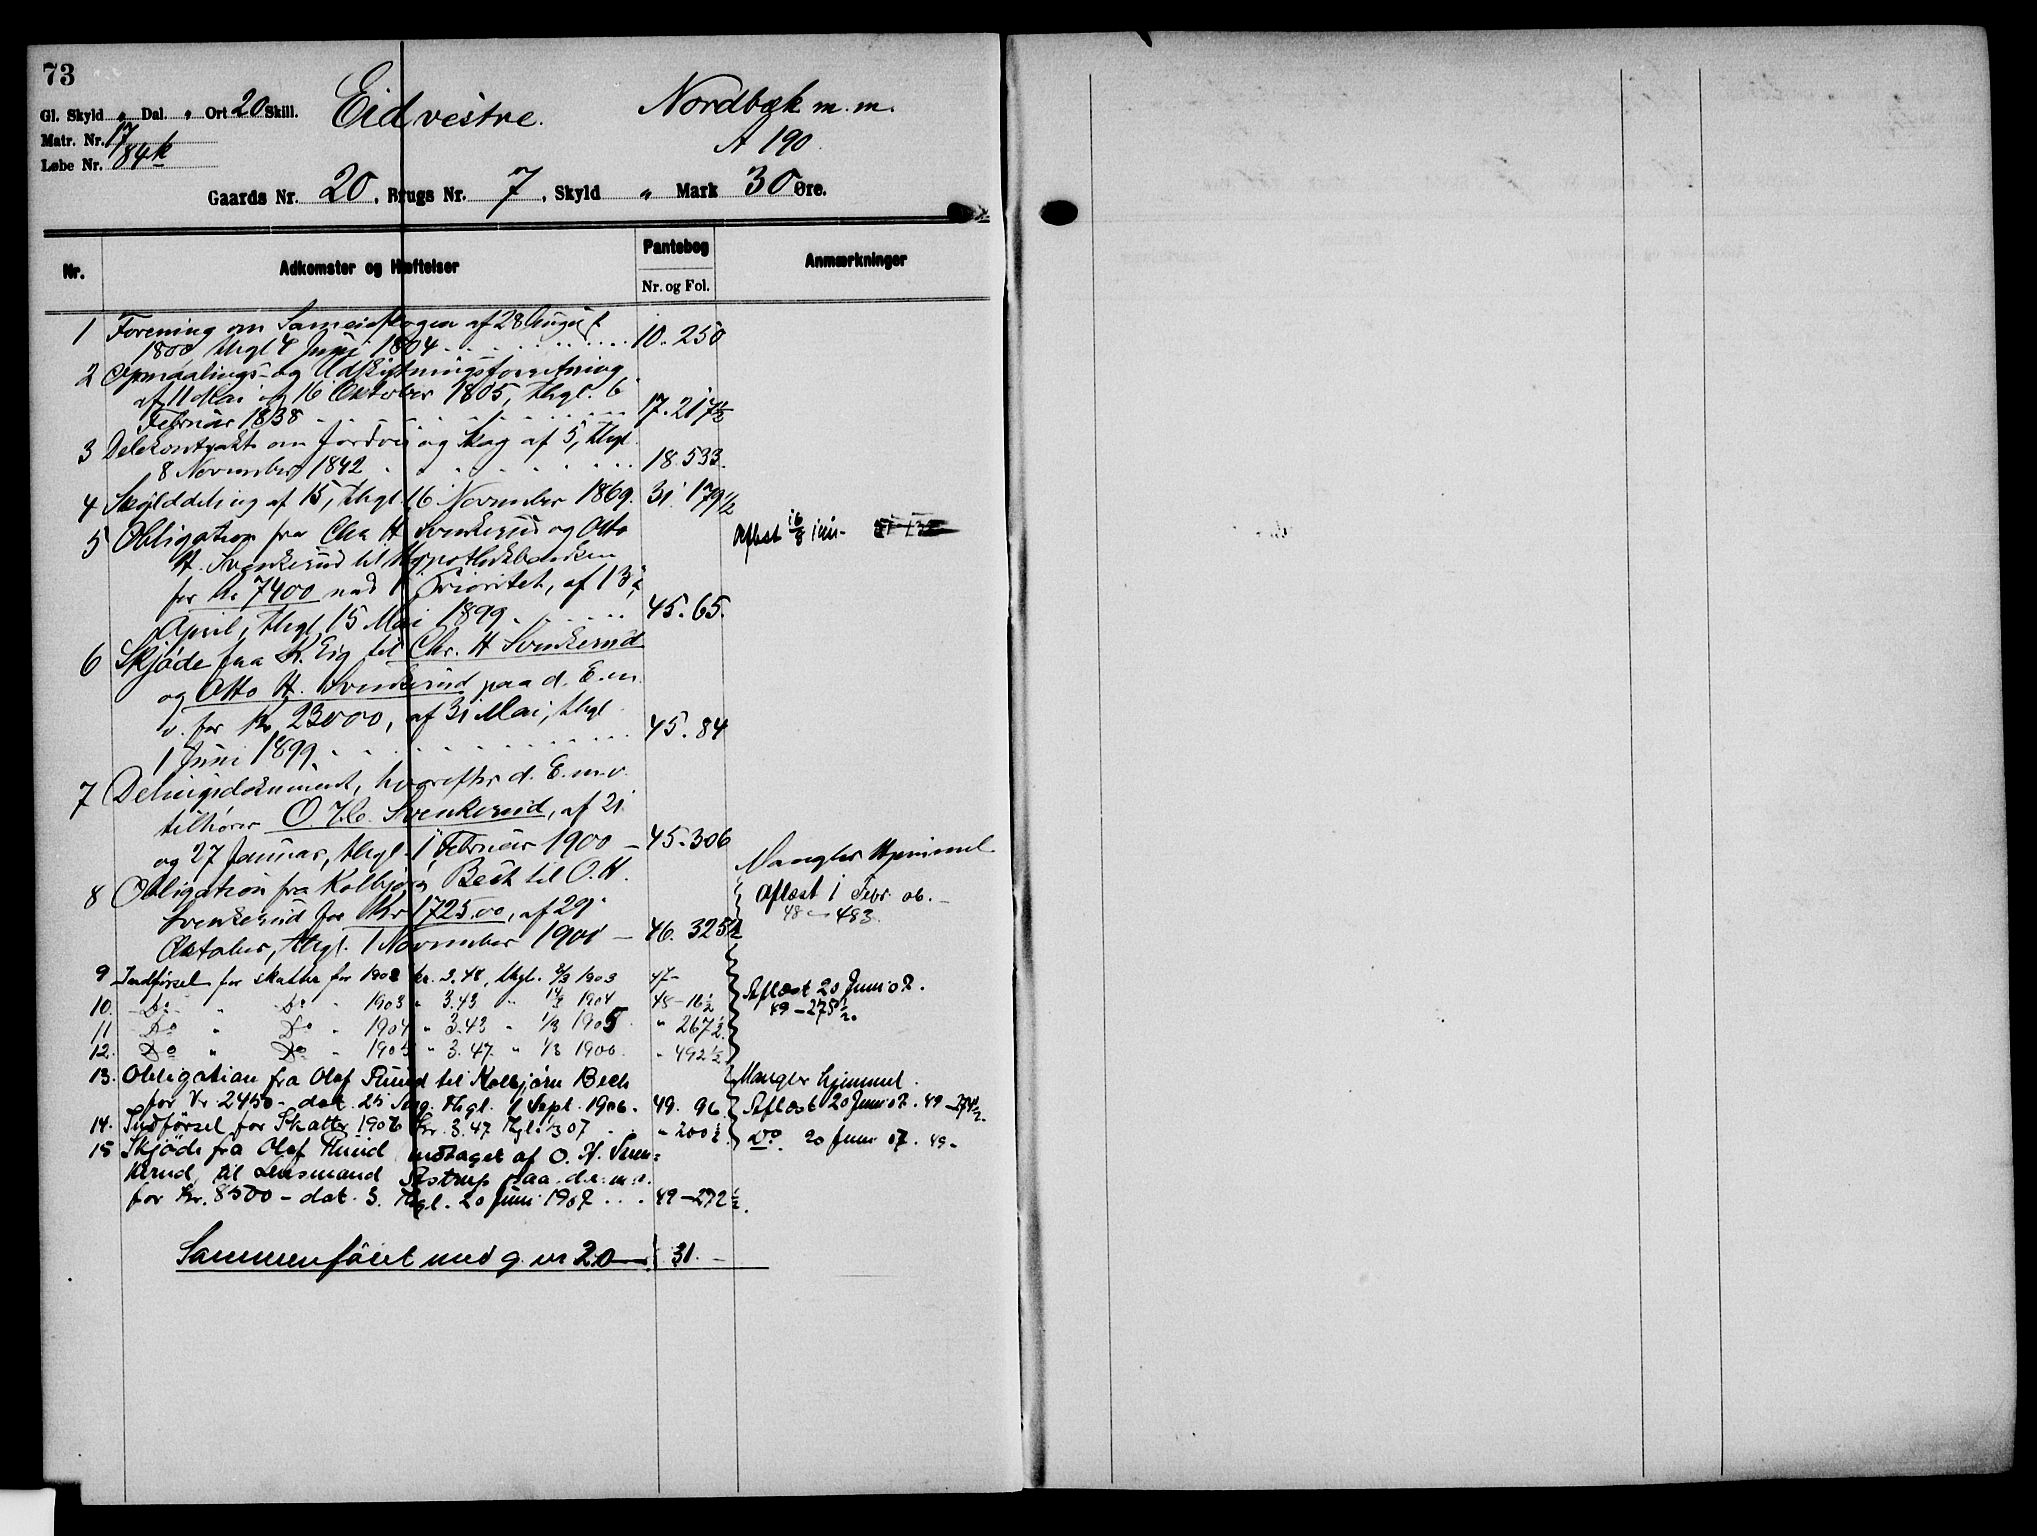 73
Gl. Skyld " Dal. " Ort 20 Skill.
Matr. Nr. 17
Løbe Nr. 84k
Eid vestre. Nordbæk m. m.
A 190.
Gaards Nr. 20, Brugs Nr. 7, Skyld " Mark 30 Øre.
Nr. Adkomster og Hæftelser Pantebog Nr. og Fol. Anmærkninger
1 Forening om af 28 August
1800 thgl 4 Juni 1804 10. 250
2 Opmaalings- og Udskiftningsforretning
af 11 Mai og 16 Oktober 1805, thgl. 6
Februar 1838 17. 217½
3 Delekontrakt om Jordvei og Skog af 5, thgl.
8 November 1842 18. 533.
4 Skylddeling af 15, thgl 16 November 1869. 31. 179½
5 Obligation fra Chr H Svenkerud og Otto Aflæst 16/8
H. Svenkerud til Hypothekbanken
for Kr 7400 med 1 Prioritet, af 13
April, thgl 15 Mai 1899. 45. 65.
6 Skjøde fra K. Eig til Chr. H Svenkerud
og Otto H. Svenkerud paa d. E. m.
v. for Kr 23000, af 31 Mai, thgl
1 Juni 1899. 45. 84
7 Delingsdokument, hvorefter d. E. m. v.
tilhører O. H. Svenkerud, af 21
og 27 Januar, thgl. 1 Februar 1900 — 45. 306
8 Obligation fra Kolbjørn Bech til O. H. Mangler Hjemmel
Svenkerud for Kr 1725.00, af 29 Aflæst 1 Febr. 06. —
Oktober, thgl. 1 November 1901 — 46. 325½ 48 — 483.
9 Indførsel for skatter for 1902 kr. 3.48, thgl. 2/3 1903 47 -
10. - Do - " Do " 1903 " 3.43 " 14/3 1904 48 - 16½ Aflæst 20 Juni 07.
11 Do " Do " 1904 " 3.43 " 1/3 1905. " 267½. 49 — 275½.
12. Do " Do " 1905 " 3.47 " 1/3 1906. " 492½
13. Obligation fra Olaf Ruud til Kolbjørn Bech Mangler hjemmel.
for Kr 2450 - dat. 25 Aug. thgl. 1 Sept. 1906. 49. 96. Aflæst 20 Juni 07. 49 — 274½.
14. Indførsel for Skatter 1906 Kr. 3.47 thgl. 1/3 07 " 200½. Do. 20 Juni 07. 49 -
15 Skjøde fra Olaf Ruud, medtaget af O. H. Sven-
kerud, til Lensmand Astrup paa d. e. m. v.
for Kr. 8500 - dat. 3. thgl. 20 Juni 1907 . . . 49 — 272½.
Sammenføiet med g. nr 20 — 31. —